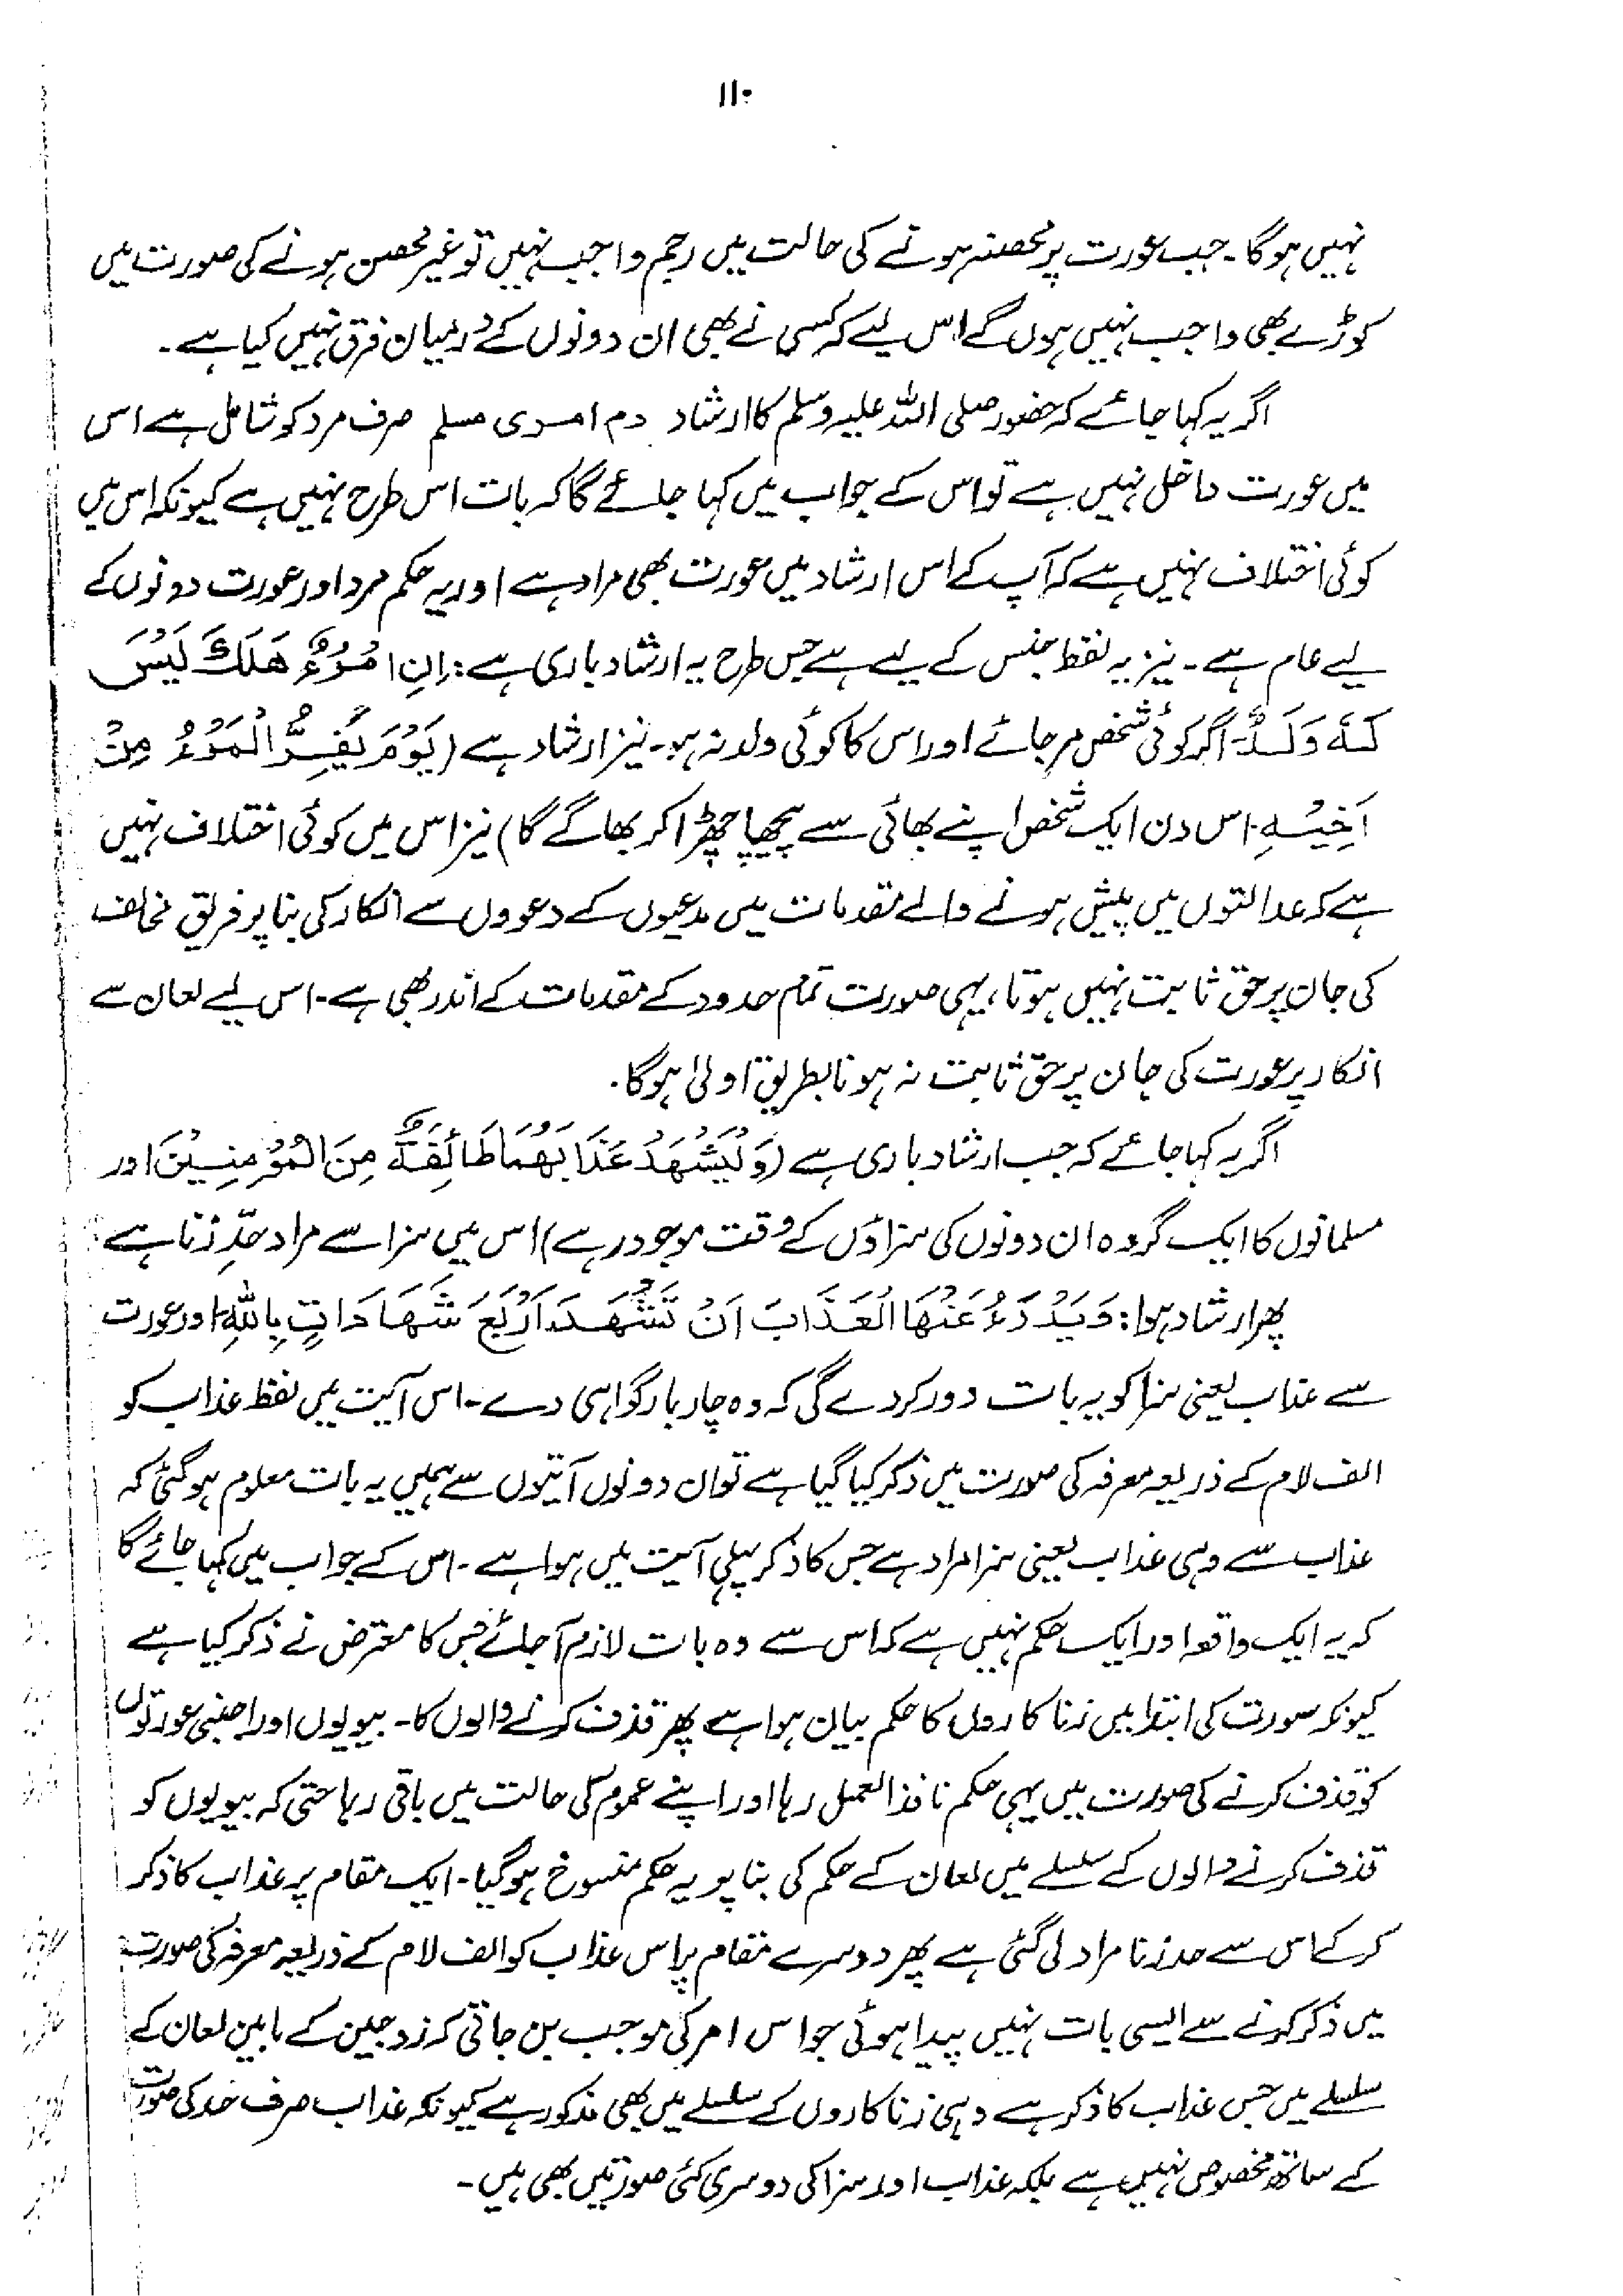 ۱۱۰
نہیں ہوگا۔ جب عورت پر محصنہ ہونے کی حالت میں رجم واجب نہیں تو غیر محصن ہونے کی صورت میں
کوڑے بھی واجب نہیں ہوں گے اس لیے کہ کسی نے بھی ان دونوں کے درمیان فرق نہیں کیا ہے۔
اگر یہ کہا جائے کہ حضور صلی اللہ علیہ وسلم کا ارشاد دم امرئ مسلم صرف مرد کو شامل ہے اس
میں عورت داخل نہیں ہے تو اس کے جواب میں کہا جائے گا کہ بات اس طرح نہیں ہے کیونکہ اس میں
کوئی اختلاف نہیں ہے کہ آپ کے اس ارشاد میں عورت بھی مراد ہے اور یہ حکم مرد اور عورت دونوں کے
لیے عام ہے۔ نیز یہ لفظ جنس کے لیے ہے جس طرح یہ ارشاد باری ہے: اِنِ امْرُؤٌ هَلَكَ لَيْسَ
لَهٗ وَلَدٌ۔ اگر کوئی شخص مر جائے اور اس کا کوئی ولد نہ ہو۔ نیز ارشاد ہے (يَوْمَ يَفِرُّ الْمَرْءُ مِنْ
اَخِيْهِ۔ اس دن ایک شخص اپنے بھائی سے پیچھا چھڑا کر بھاگے گا) نیز اس میں کوئی اختلاف نہیں
ہے کہ عدالتوں میں پیش ہونے والے مقدمات میں مدعیوں کے دعووں سے انکار کی بنا پر فریق مخالف
کی جان پر حق ثابت نہیں ہوتا، یہی صورت تمام حدود کے مقدمات کے اندر بھی ہے۔ اس لیے لعان سے
انکار پر عورت کی جان پر حق ثابت نہ ہونا بطریق اولیٰ ہوگا۔
اگر یہ کہا جائے کہ جب ارشاد باری ہے (وَلْيَشْهَدْ عَذَابَهُمَا طَائِفَةٌ مِنَ الْمُؤْمِنِيْنَ اور
مسلمانوں کا ایک گروہ ان دونوں کی سزاؤں کے وقت موجود رہے) اس میں سزا سے مراد حدِّ زنا ہے
پھر ارشاد ہوا: وَيَدْرَءُ عَنْهَا الْعَذَابَ اَنْ تَشْهَدَ اَرْبَعَ شَهَادَاتٍ بِاللهِ اور عورت
سے عذاب یعنی سزا کو یہ بات دور کر دے گی کہ وہ چار بار گواہی دے۔ اس آیت میں لفظ عذاب کو
الف لام کے ذریعہ معرفہ کی صورت میں ذکر کیا گیا ہے تو ان دونوں آیتوں سے ہمیں یہ بات معلوم ہوگئی کہ
عذاب سے وہی عذاب یعنی سزا مراد ہے جس کا ذکر پہلی آیت میں ہوا ہے۔ اس کے جواب میں کہا جائے گا
کہ یہ ایک واقعہ اور ایک حکم نہیں ہے کہ اس سے وہ بات لازم آجائے جس کا معترض نے ذکر کیا ہے
کیونکہ سورت کی ابتدا میں زنا کاروں کا حکم بیان ہوا ہے پھر قذف کرنے والوں کا۔ بیویوں اور اجنبی عورتوں
کو قذف کرنے کی صورت میں یہی حکم نافذ العمل رہا اور اپنے عموم کی حالت میں باقی رہا حتی کہ بیویوں کو
قذف کرنے والوں کے سلسلے میں لعان کے حکم کی بنا پر یہ حکم منسوخ ہوگیا۔ ایک مقام پر عذاب کا ذکر
کرکے اس سے حد زنا مراد لی گئی ہے پھر دوسرے مقام پر اس عذاب کو الف لام کے ذریعہ معرفہ کی صورت
میں ذکر کرنے سے ایسی بات نہیں پیدا ہوئی جو اس امر کی موجب بن جاتی کہ زوجین کے مابین لعان کے
سلسلے میں جس عذاب کا ذکر ہے وہی زنا کاروں کے سلسلے میں بھی مذکور ہے کیونکہ عذاب صرف حد کی صورت
کے ساتھ مخصوص نہیں ہے بلکہ عذاب اور سزا کی دوسری کئی صورتیں بھی ہیں۔